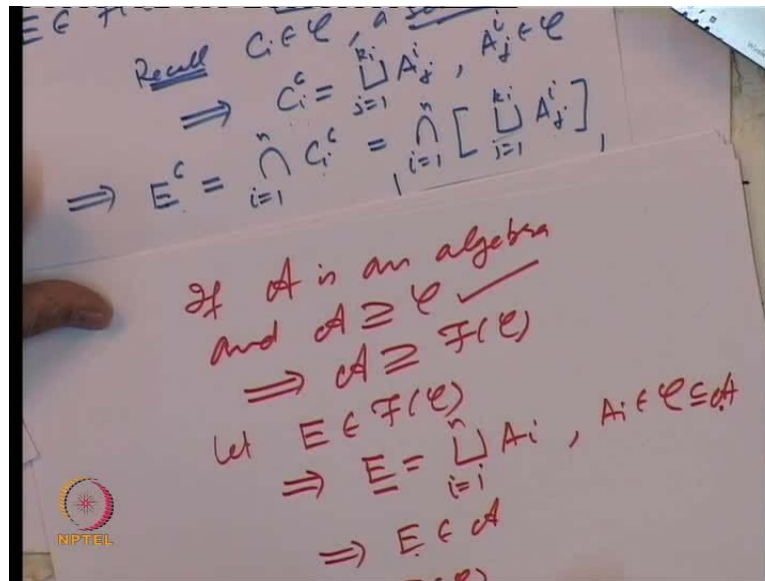 E ∈ F(
Recall C_i ∈ 𝒞, a
⟹ C_i^c = ⊔_{j=1}^{k_i} A_j^i , A_j^i ∈ 𝒞
⟹ E^c = ⋂_{i=1}^n C_i^c = ⋂_{i=1}^n [ ⊔_{i=1}^{k_i} A_j^i ],
If A is an algebra
and A ⊇ 𝒞 ✓
⟹ A ⊇ F(𝒞)
Let E ∈ F(𝒞)
⟹ E = ⊔_{i=i}^n A_i , A_i ∈ 𝒞 ⊆ A
⟹ E ∈ A
NPTEL